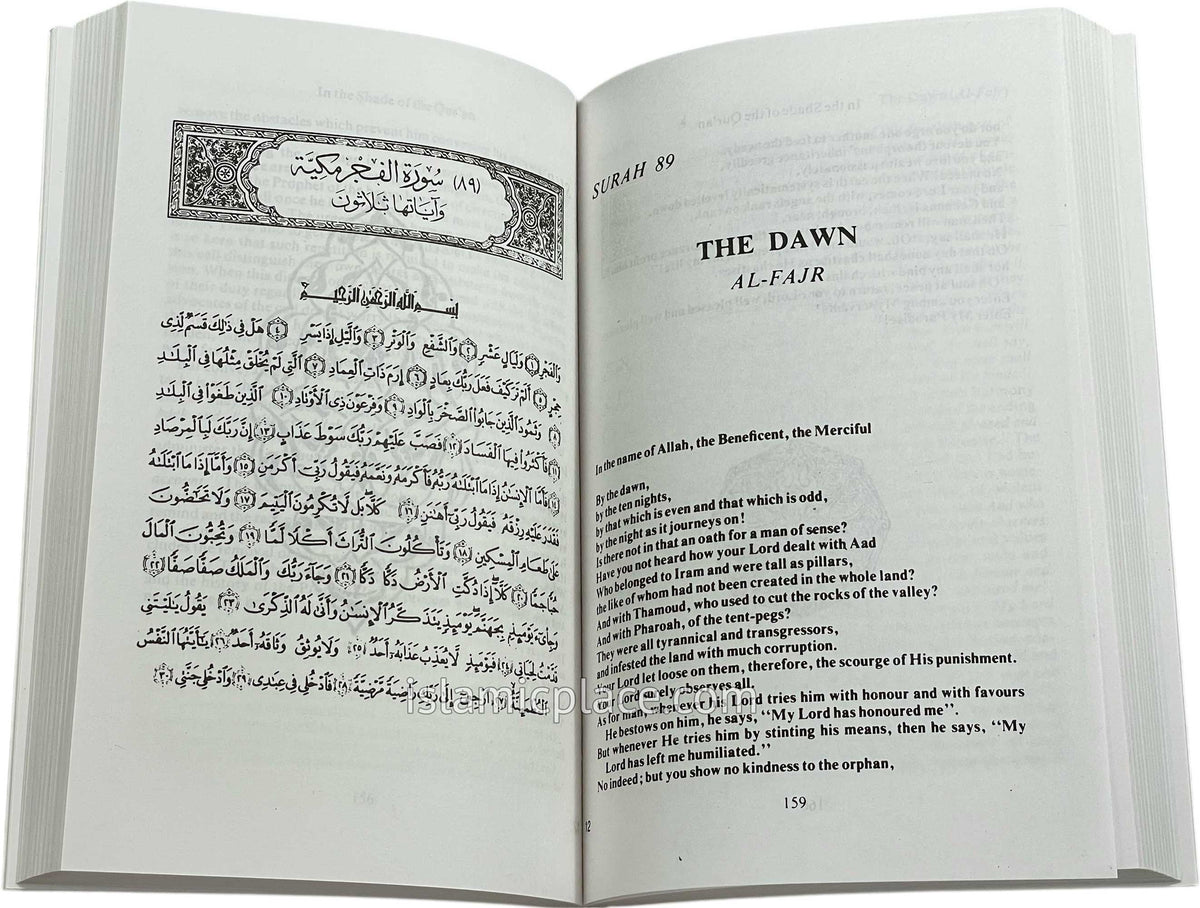 (٨٩) سُورَة الفَجْر مَكيَّة
وَآيَاتهَا ثَلَاثُونَ
بِسْمِ اللَّهِ الرَّحْمَٰنِ الرَّحِيمِ
وَالْفَجْرِ ١ وَلَيَالٍ عَشْرٍ ٢ وَالشَّفْعِ وَالْوَتْرِ ٣ وَالَّيْلِ إِذَا يَسْرِ ٤ هَلْ فِي ذَٰلِكَ قَسَمٌ لِّذِي
حِجْرٍ ٥ أَلَمْ تَرَ كَيْفَ فَعَلَ رَبُّكَ بِعَادٍ ٦ إِرَمَ ذَاتِ الْعِمَادِ ٧ الَّتِي لَمْ يُخْلَقْ مِثْلُهَا فِي الْبِلَادِ
٨ وَثَمُودَ الَّذِينَ جَابُوا الصَّخْرَ بِالْوَادِ ٩ وَفِرْعَوْنَ ذِي الْأَوْتَادِ ١٠ الَّذِينَ طَغَوْا فِي الْبِلَادِ
١١ فَأَكْثَرُوا فِيهَا الْفَسَادَ ١٢ فَصَبَّ عَلَيْهِمْ رَبُّكَ سَوْطَ عَذَابٍ ١٣ إِنَّ رَبَّكَ لَبِالْمِرْصَادِ
١٤ فَأَمَّا الْإِنسَٰنُ إِذَا مَا ابْتَلَىٰهُ رَبُّهُ فَأَكْرَمَهُ وَنَعَّمَهُ فَيَقُولُ رَبِّي أَكْرَمَنِ ١٥ وَأَمَّا إِذَا مَا ابْتَلَىٰهُ
فَقَدَرَ عَلَيْهِ رِزْقَهُ فَيَقُولُ رَبِّي أَهَٰنَنِ ١٦ كَلَّا بَل لَّا تُكْرِمُونَ الْيَتِيمَ ١٧ وَلَا تَحَٰضُّونَ
عَلَىٰ طَعَامِ الْمِسْكِينِ ١٨ وَتَأْكُلُونَ التُّرَاثَ أَكْلًا لَّمًّا ١٩ وَتُحِبُّونَ الْمَالَ
حُبًّا جَمًّا ٢٠ كَلَّا إِذَا دُكَّتِ الْأَرْضُ دَكًّا دَكًّا ٢١ وَجَاءَ رَبُّكَ وَالْمَلَكُ صَفًّا صَفًّا ٢٢
وَجِاْيءَ يَوْمَئِذٍ بِجَهَنَّمَ يَوْمَئِذٍ يَتَذَكَّرُ الْإِنسَٰنُ وَأَنَّىٰ لَهُ الذِّكْرَىٰ ٢٣ يَقُولُ يَٰلَيْتَنِي
قَدَّمْتُ لِحَيَاتِي ٢٤ فَيَوْمَئِذٍ لَّا يُعَذِّبُ عَذَابَهُ أَحَدٌ ٢٥ وَلَا يُوثِقُ وَثَاقَهُ أَحَدٌ ٢٦ يَٰأَيَّتُهَا النَّفْسُ
الْمُطْمَئِنَّةُ ٢٧ ارْجِعِي إِلَىٰ رَبِّكِ رَاضِيَةً مَّرْضِيَّةً ٢٨ فَادْخُلِي فِي عِبَٰدِي ٢٩ وَادْخُلِي جَنَّتِي ٣٠
SURAH 89
THE DAWN
AL-FAJR
In the name of Allah, the Beneficent, the Merciful
By the dawn,
by the ten nights,
by that which is even and that which is odd,
by the night as it journeys on!
Is there not in that an oath for a man of sense?
Have you not heard how your Lord dealt with Aad
Who belonged to Iram and were tall as pillars,
the like of whom had not been created in the whole land?
And with Thamoud, who used to cut the rocks of the valley?
And with Pharoah, of the tent-pegs?
They were all tyrannical and transgressors,
and infested the land with much corruption.
Your Lord let loose on them, therefore, the scourge of His punishment.
Your Lord surely observes all.
As for man, whenever his Lord tries him with honour and with favours
He bestows on him, he says, “My Lord has honoured me”.
But whenever He tries him by stinting his means, then he says, “My
Lord has left me humiliated.”
No indeed; but you show no kindness to the orphan,
159
12
islamicplace.com